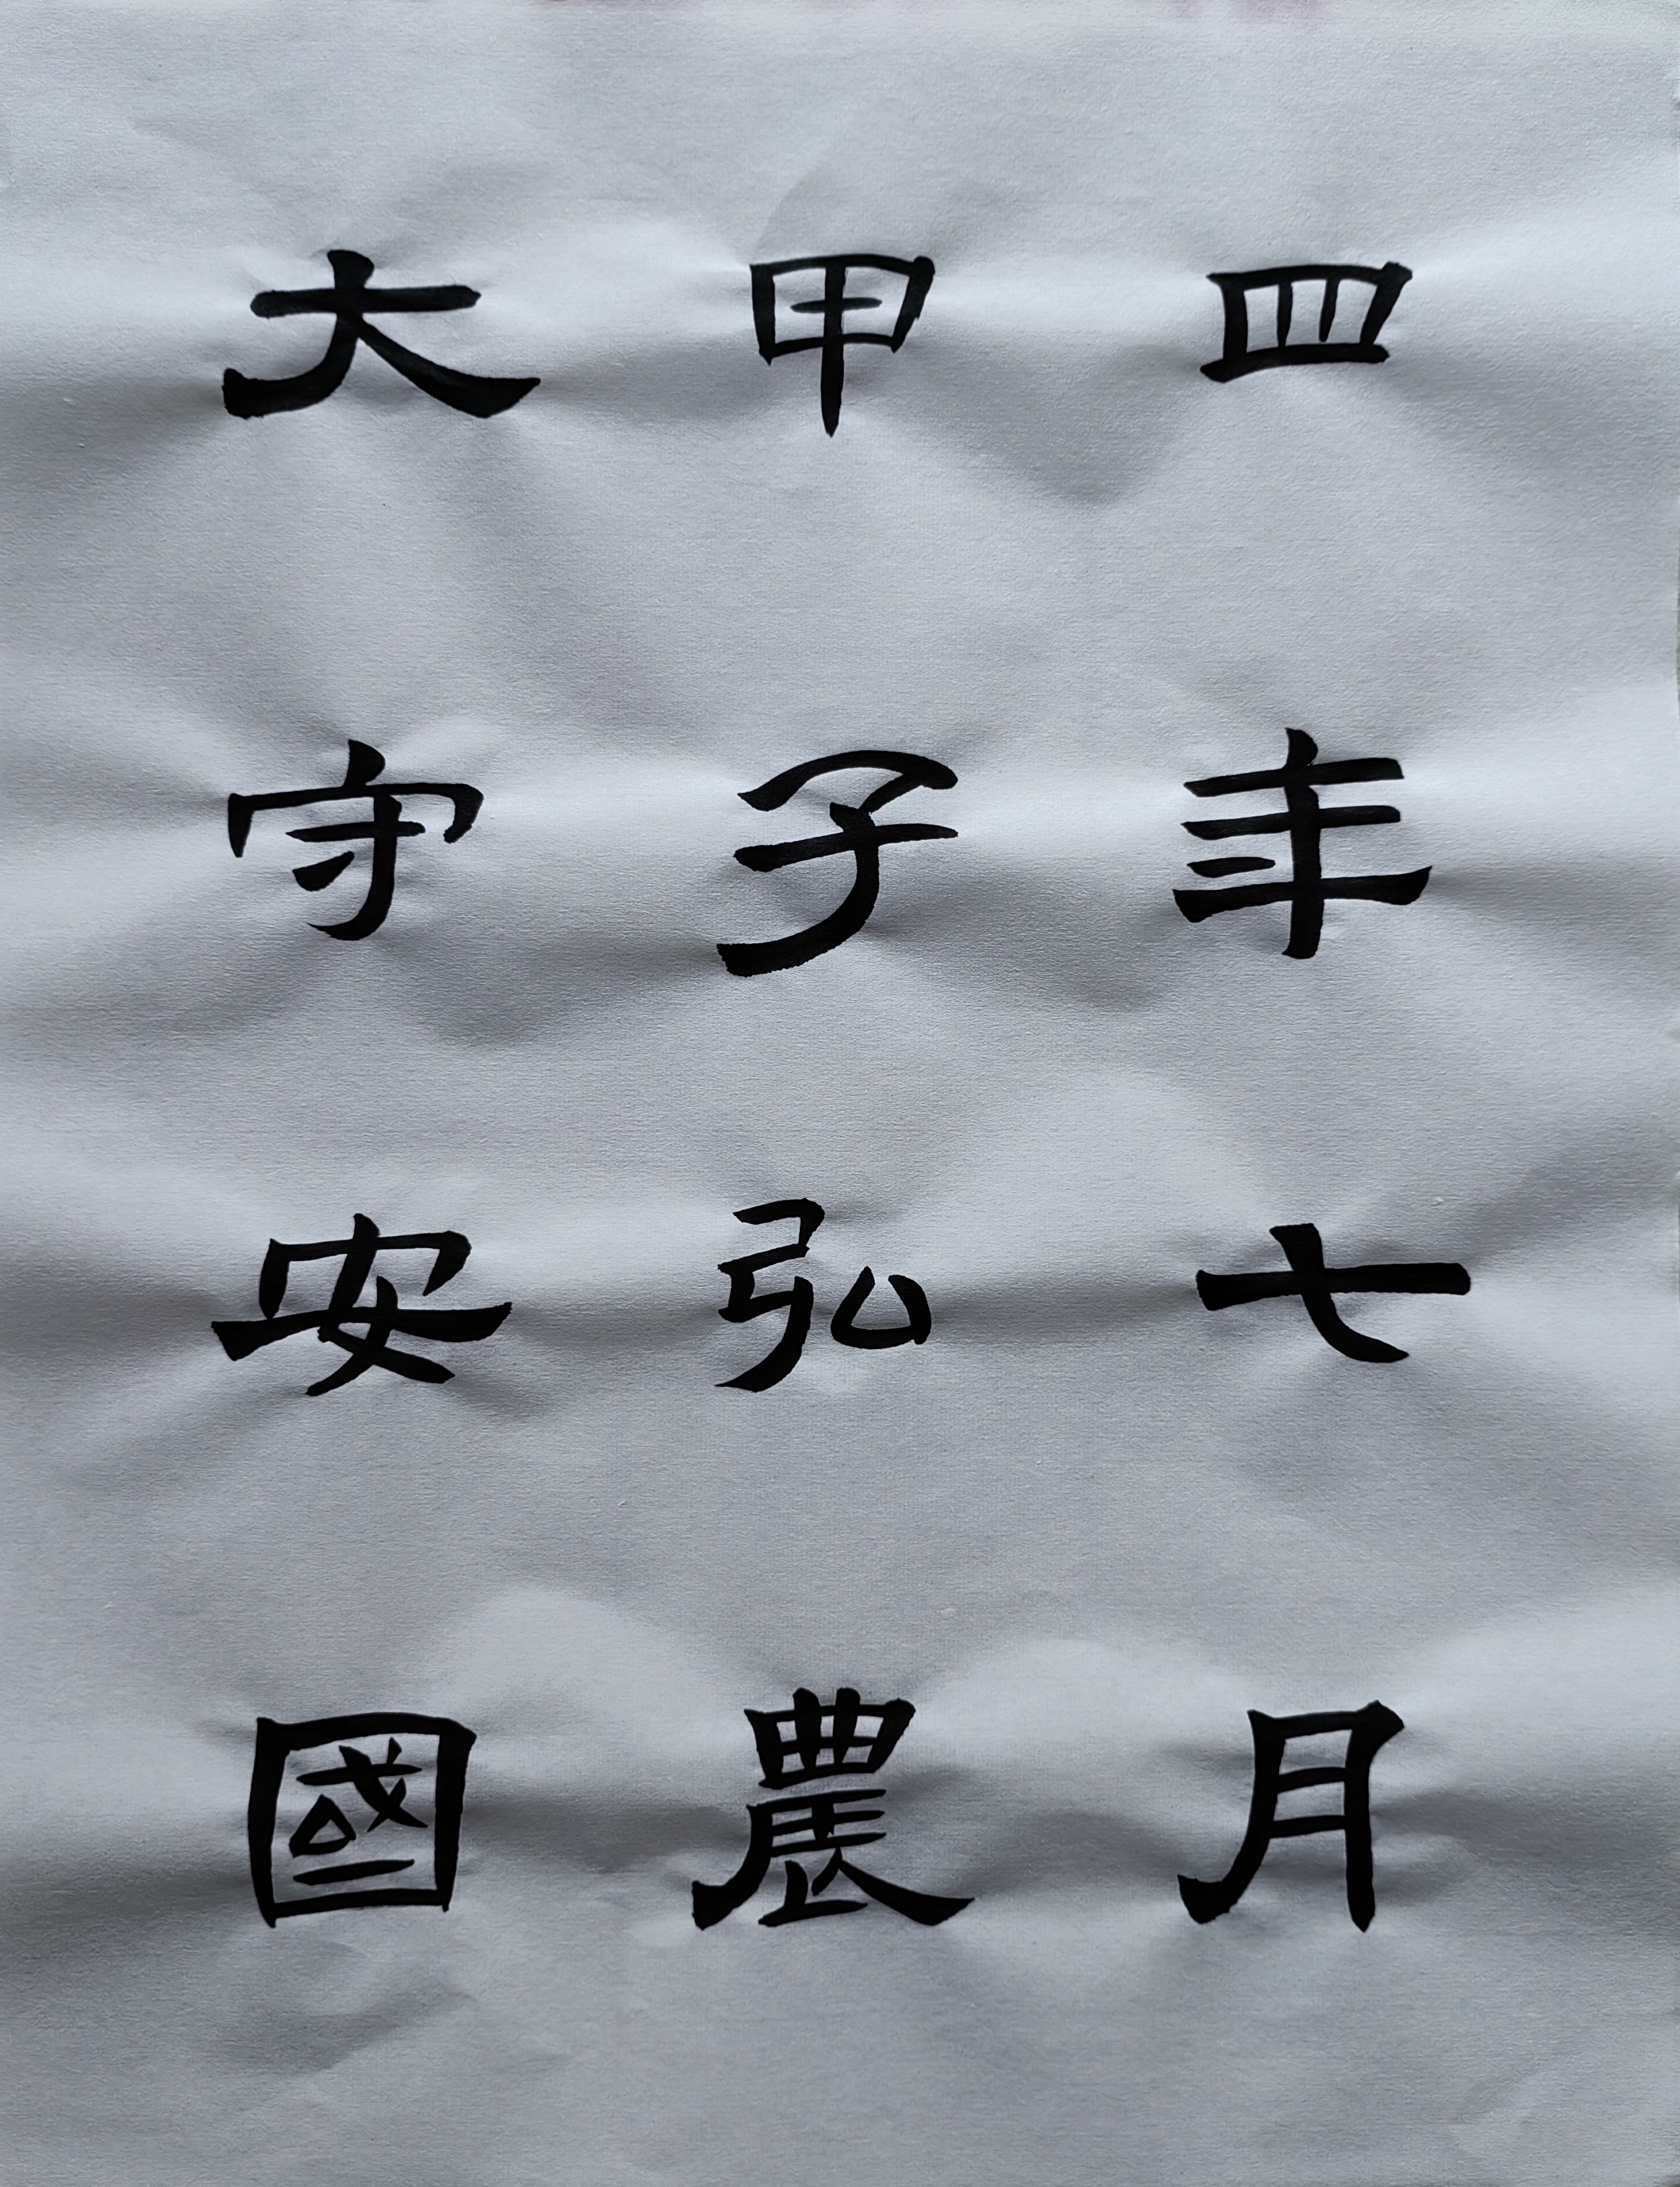 四年七月
甲子弘農
大守安國